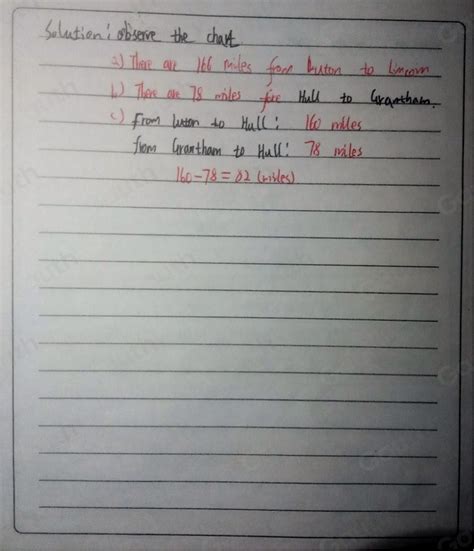 Solution: observe the chart
a) There are 166 miles from Luton to
b) There are 78 miles Hull to Grantham.
c) From Luton to Hull: 160 miles
from Grantham to Hull: 78 miles
160-78=82 (miles)